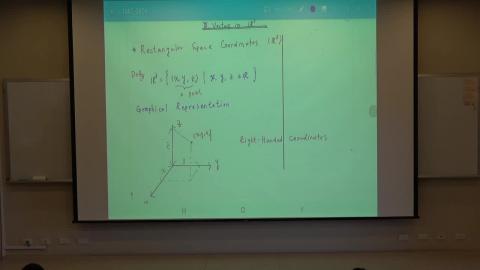 Vectors in ℝ³
* Rectangular Space Coordinates (ℝ³)
Defn ℝ³ = { (x, y, z) | x, y, z ∈ ℝ }
a point
Graphical Representation
z
(x,y,z)
Right-Handed Coordinates
z
y
y
x
x